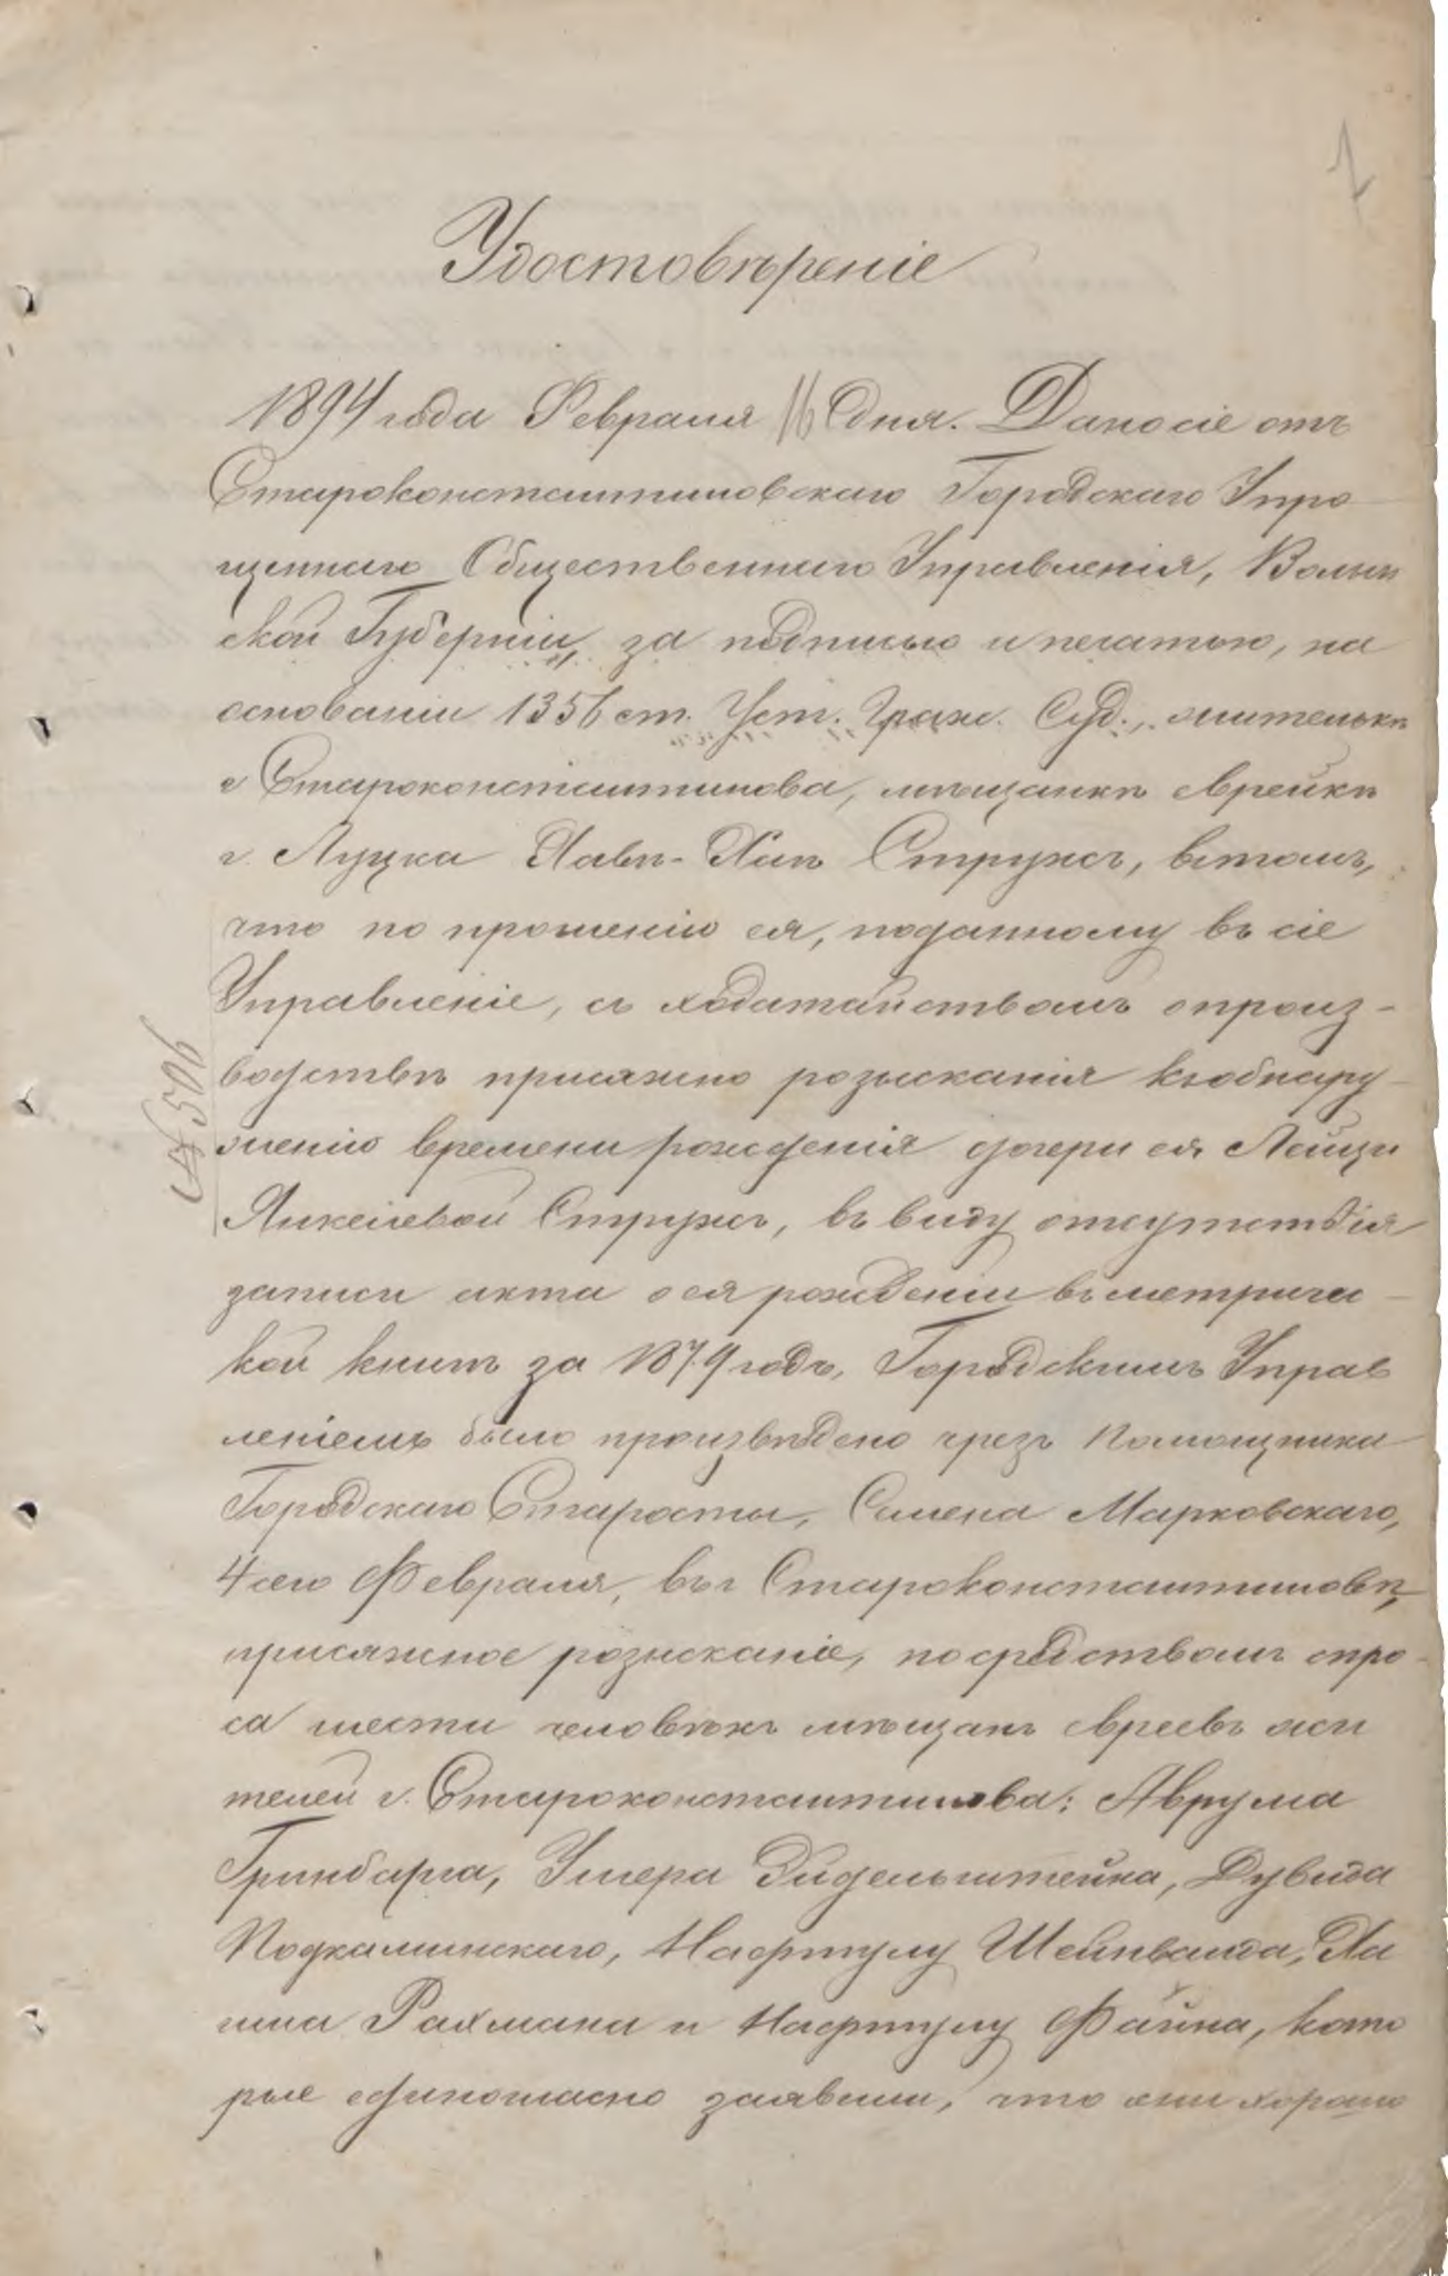 1
Удостовѣреніе
1894 года Февраля 16 дня. Дано сіе отъ
Староконстантиновскаго Городскаго Упро
щеннаго Общественнаго Управленія, Волын
ской Губерніи, за подписью и печатью, на
основаніи 1356 ст. Уст. Граж. Суд., жителькѣ
г Староконстантинова, мѣщанкѣ еврейкѣ
г. Луцка Хавѣ-Хаѣ Стружъ, въ томъ,
что по прошенію ея, поданному въ сіе
Управленіе, съ ходатайствомъ о произ-
водствѣ присяжно розысканія къ обнару
женію времени рожденія дочери ея Лейцы
Янкелевой Стружъ, въ виду отсутствія
записи акта о ея рожденіи въ метричес
кой книгѣ за 1879 годъ, Городскимъ Управ
леніемъ было произведено чрезъ Помощника
Городскаго Старосты, Семена Марковскаго,
4 сего Февраля, въ г Староконстантиновѣ,
присяжное розысканіе, посредствомъ опро
са шести человѣкъ мѣщанъ евреевъ жи
телей г. Староконстантинова: Аврума
Гринбарга, Ушера Эйдельштейна, Дувида
Подкаминскаго, Нафтулу Шейнвальда, Ха
има Рахмана и Нафтулу Файна, кото
рые единогласно заявили, что они хорошо
№ 506